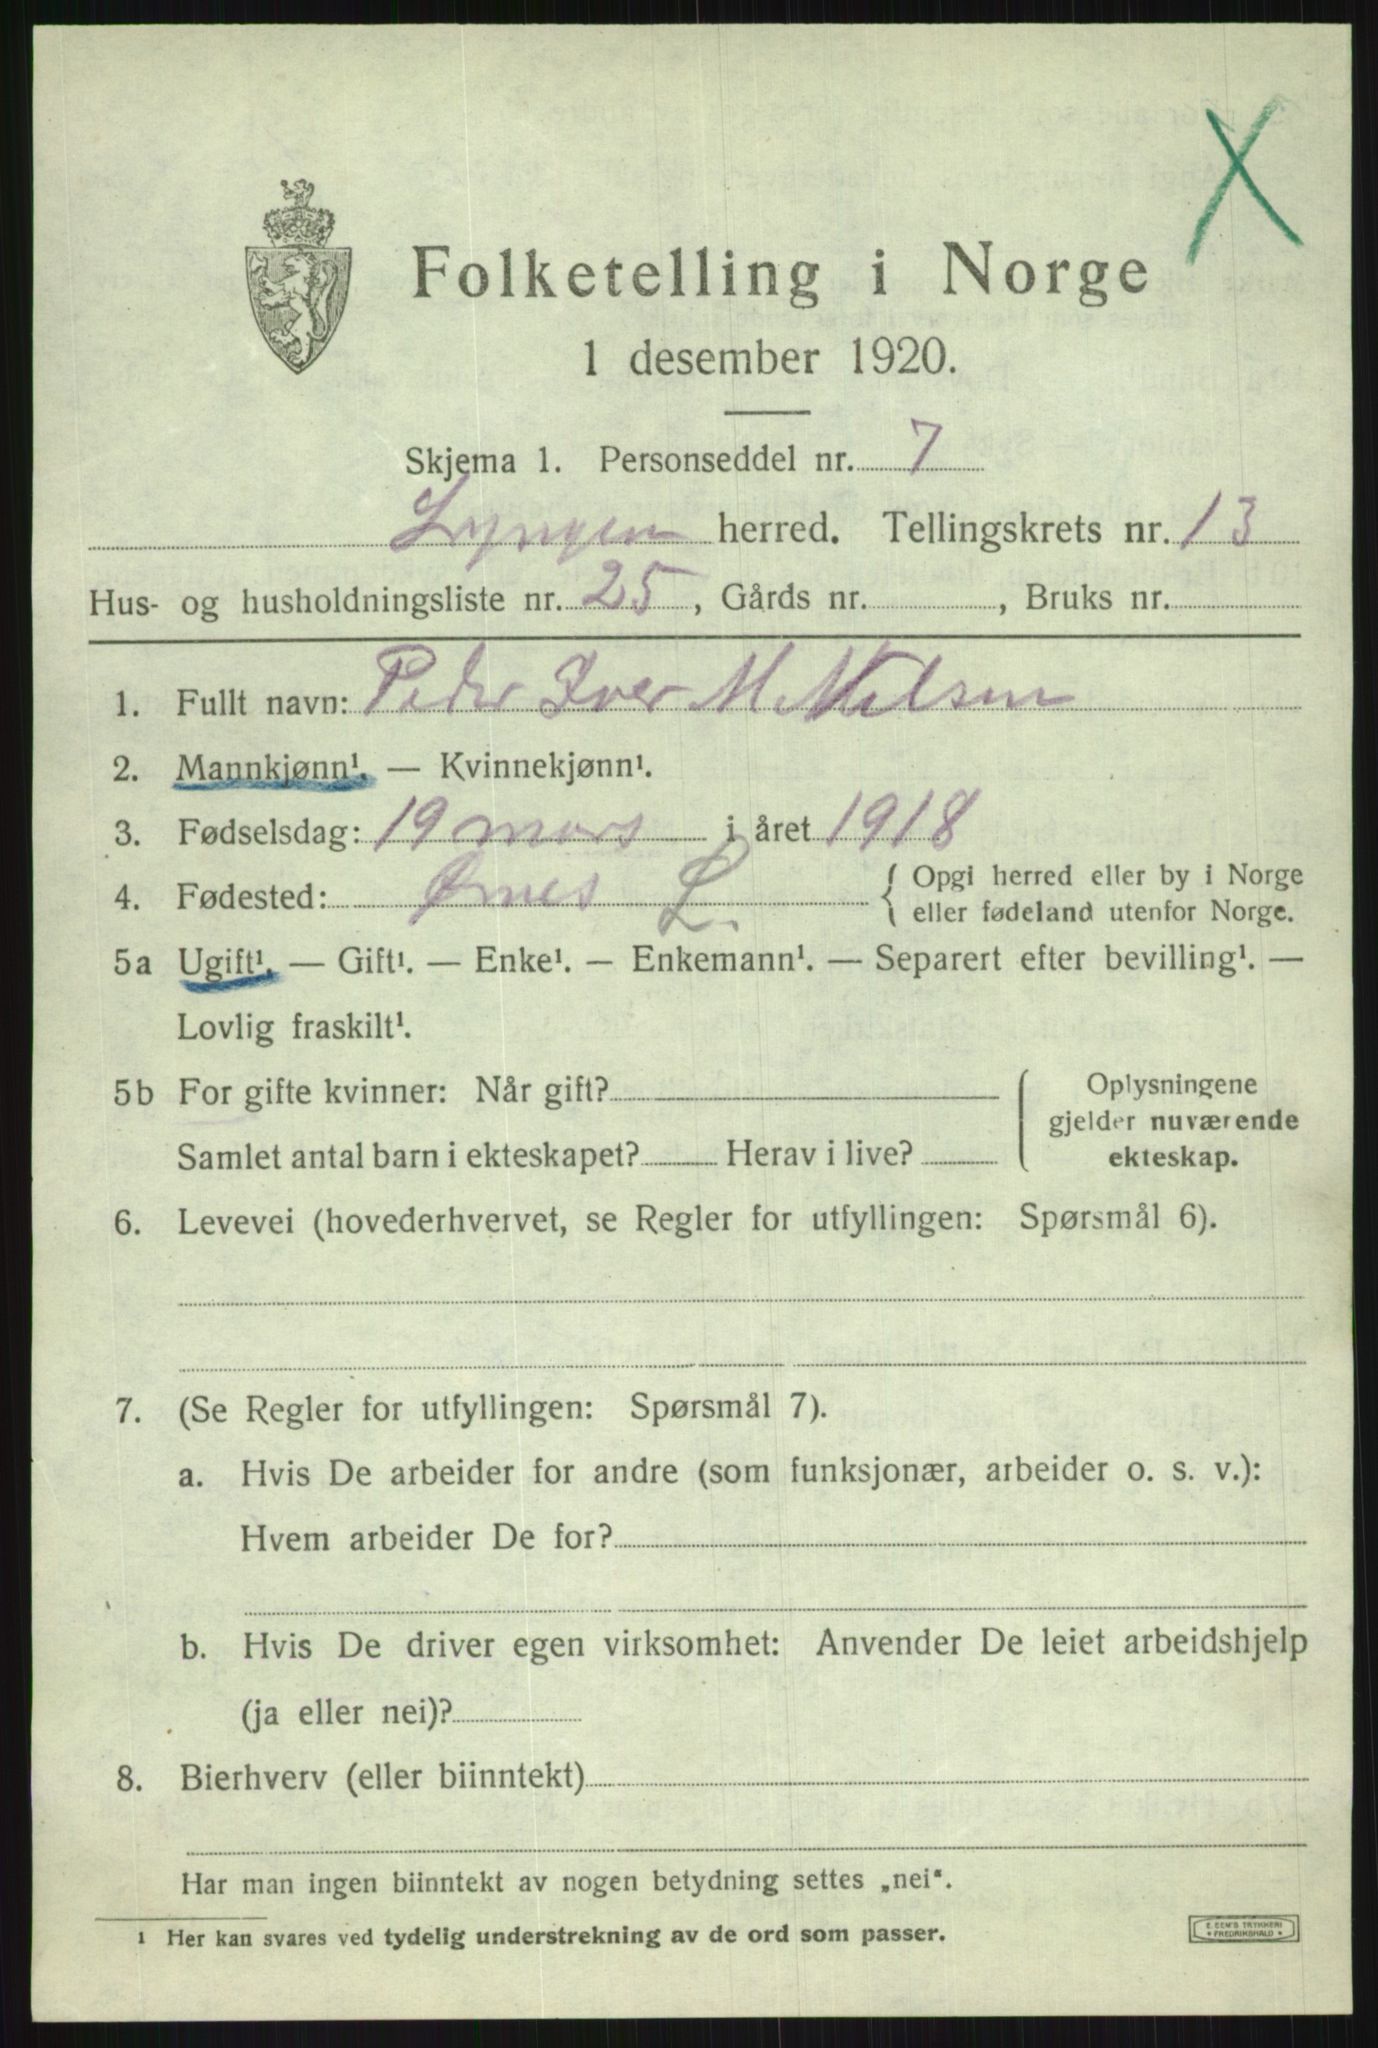 Folketelling i Norge
1 desember 1920.
Skjema 1. Personseddel nr. 7
Lyngen herred. Tellingskrets nr. 13
Hus- og husholdningsliste nr. 25, Gårds nr. , Bruks nr.
1. Fullt navn: Peder Iver M. Nilsen
2. Mannkjønn¹. — Kvinnekjønn¹.
3. Fødselsdag: 19 mars i året 1918
4. Fødested: Ørnes L. { Opgi herred eller by i Norge
eller fødeland utenfor Norge.
5a Ugift¹. — Gift¹. — Enke¹. — Enkemann¹. — Separert efter bevilling¹. —
Lovlig fraskilt¹.
5b For gifte kvinner: Når gift?
Samlet antal barn i ekteskapet? Herav i live?
Oplysningene
gjelder nuværende
ekteskap.
6. Levevei (hovederhvervet, se Regler for utfyllingen: Spørsmål 6).
7. (Se Regler for utfyllingen: Spørsmål 7).
a. Hvis De arbeider for andre (som funksjonær, arbeider o. s. v.):
Hvem arbeider De for?
b. Hvis De driver egen virksomhet: Anvender De leiet arbeidshjelp
(ja eller nei)?
8. Bierhverv (eller biinntekt)
Har man ingen biinntekt av nogen betydning settes „nei".
¹ Her kan svares ved tydelig understrekning av de ord som passer.
E. SEM'S TRYKKERI
FREDRIKSHALD